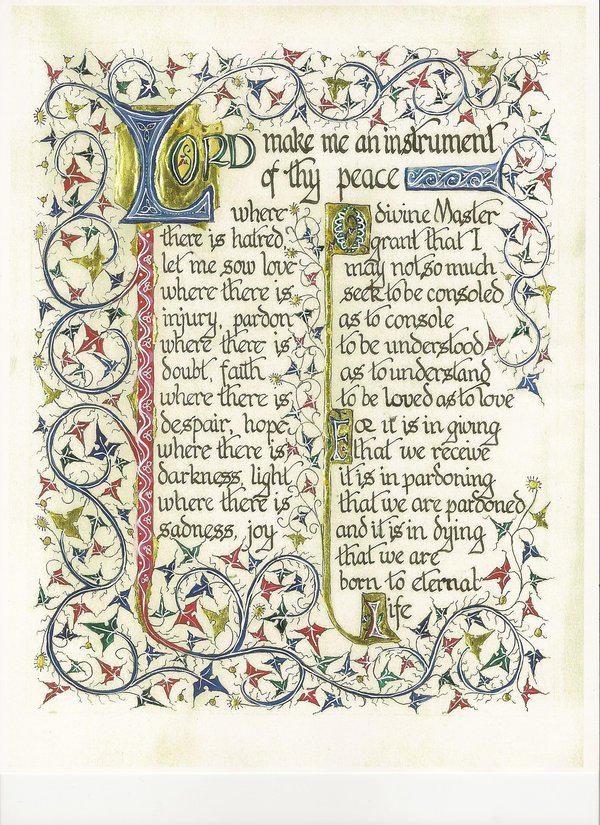 LORD make me an instrument
of thy peace
where
there is hatred,
let me sow love
where there is
injury, pardon
where there is
doubt, faith
where there is
despair, hope
where there is
darkness, light
where there is
sadness, joy
O divine Master
grant that I
may not so much
seek to be consoled
as to console
to be understood
as to understand
to be loved as to love
For it is in giving
that we receive
it is in pardoning
that we are pardoned
and it is in dying
that we are
born to eternal
life